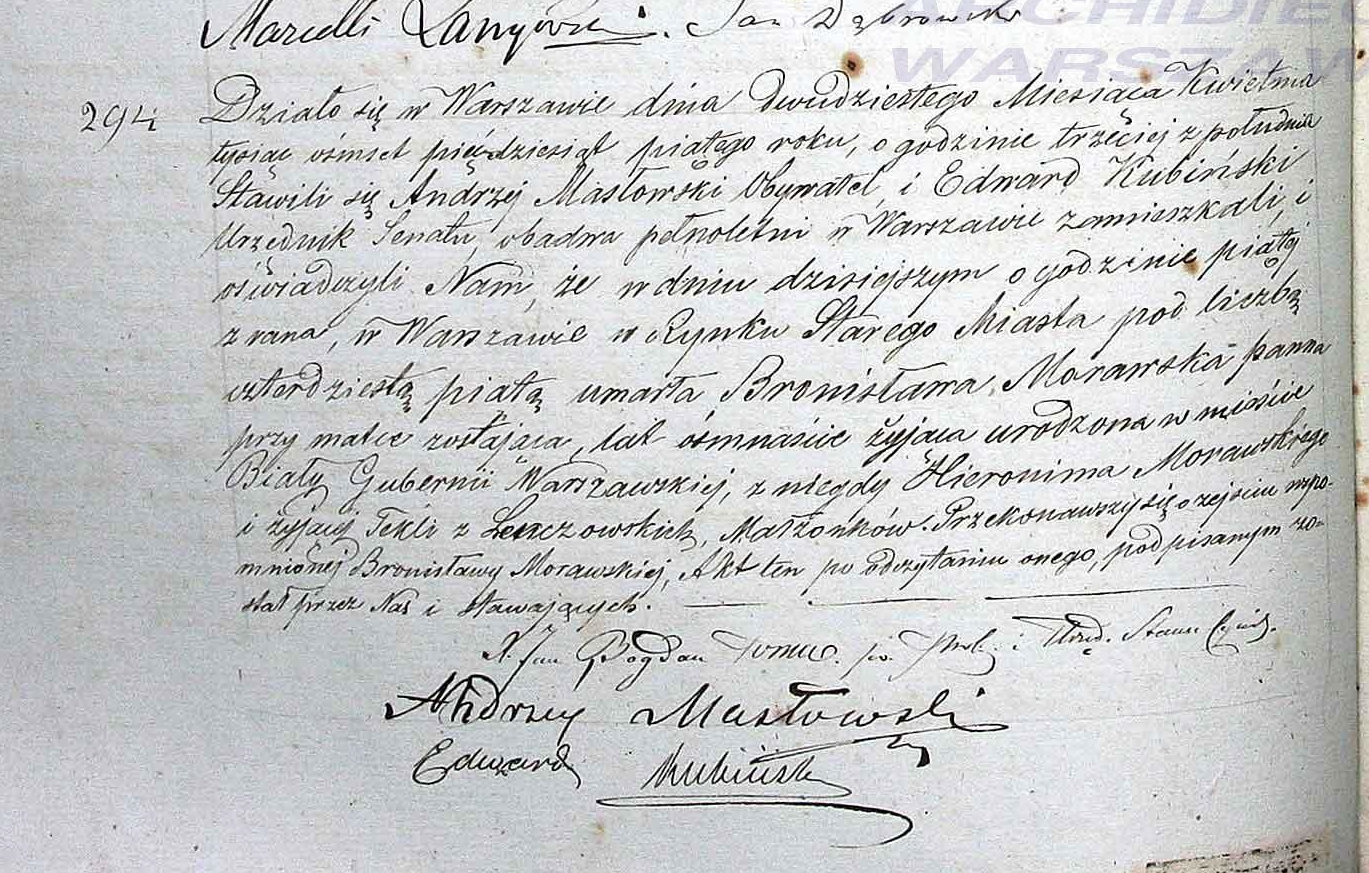 ARCHIDIEC
WARSZAW
Marcelli Jan Dąbrowski
294
Działo się w Warszawie dnia dwudziestego Miesiąca Kwietnia
tysiąc ośmset pięćdziesiąt piątego roku, o godzinie trzeciej z południa
Stawili się Andrzej Masłowski Obywatel, i Edward Kubiński
Urzędnik Senatu, obadwa pełnoletni w Warszawie zamieszkali, i
oświadczyli Nam, że w dniu dzisiejszym o godzinie piątej
z rana, w Warszawie w Rynku Starego Miasta pod liczbą
czterdziestą piątą umarła Bronisława Morawska panna
przy matce zostająca, lat ośmnaście żyjąca urodzona w mieście
Biały Gubernii Warszawskiej, z niegdy Hieronima Morawskiego
i żyjącej Tekli z Małżonków. Przekonawszy się o zejściu wspo-
mnionej Bronisławy Morawskiej, Akt ten po odczytaniu onego, podpisanym zo-
stał przez Nas i stawających.
X. Jan Bogdan i Urzęd. Stanu Cywil.
Andrzej Masłowski
Edward Kubiński